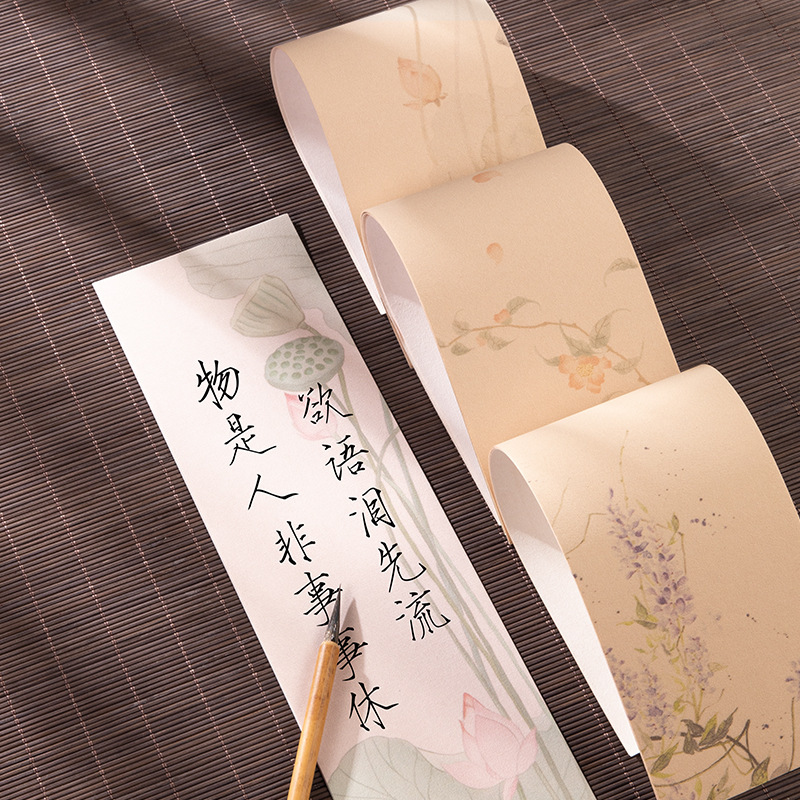 物是人非事事休
欲语泪先流